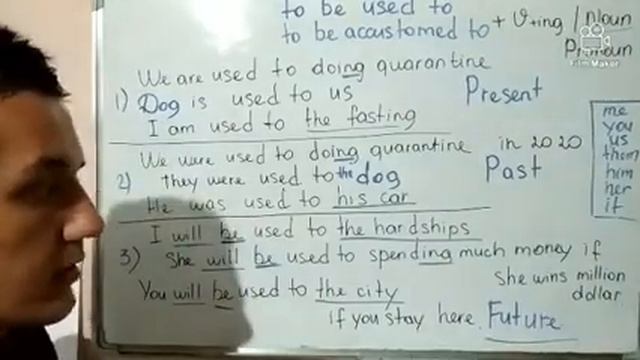 to be used to
to be accustomed to + V+ing / Noun
Pronoun
Film Maker
We are used to doing quarantine
1) Dog is used to us Present
I am used to the fasting
We were used to doing quarantine in 2020
2) They were used to the dog Past
He was used to his car
me
you
us
them
him
her
it
I will be used to the hardships
3) She will be used to spending much money if
She wins million
dollar
You will be used to the city
if you stay here. Future